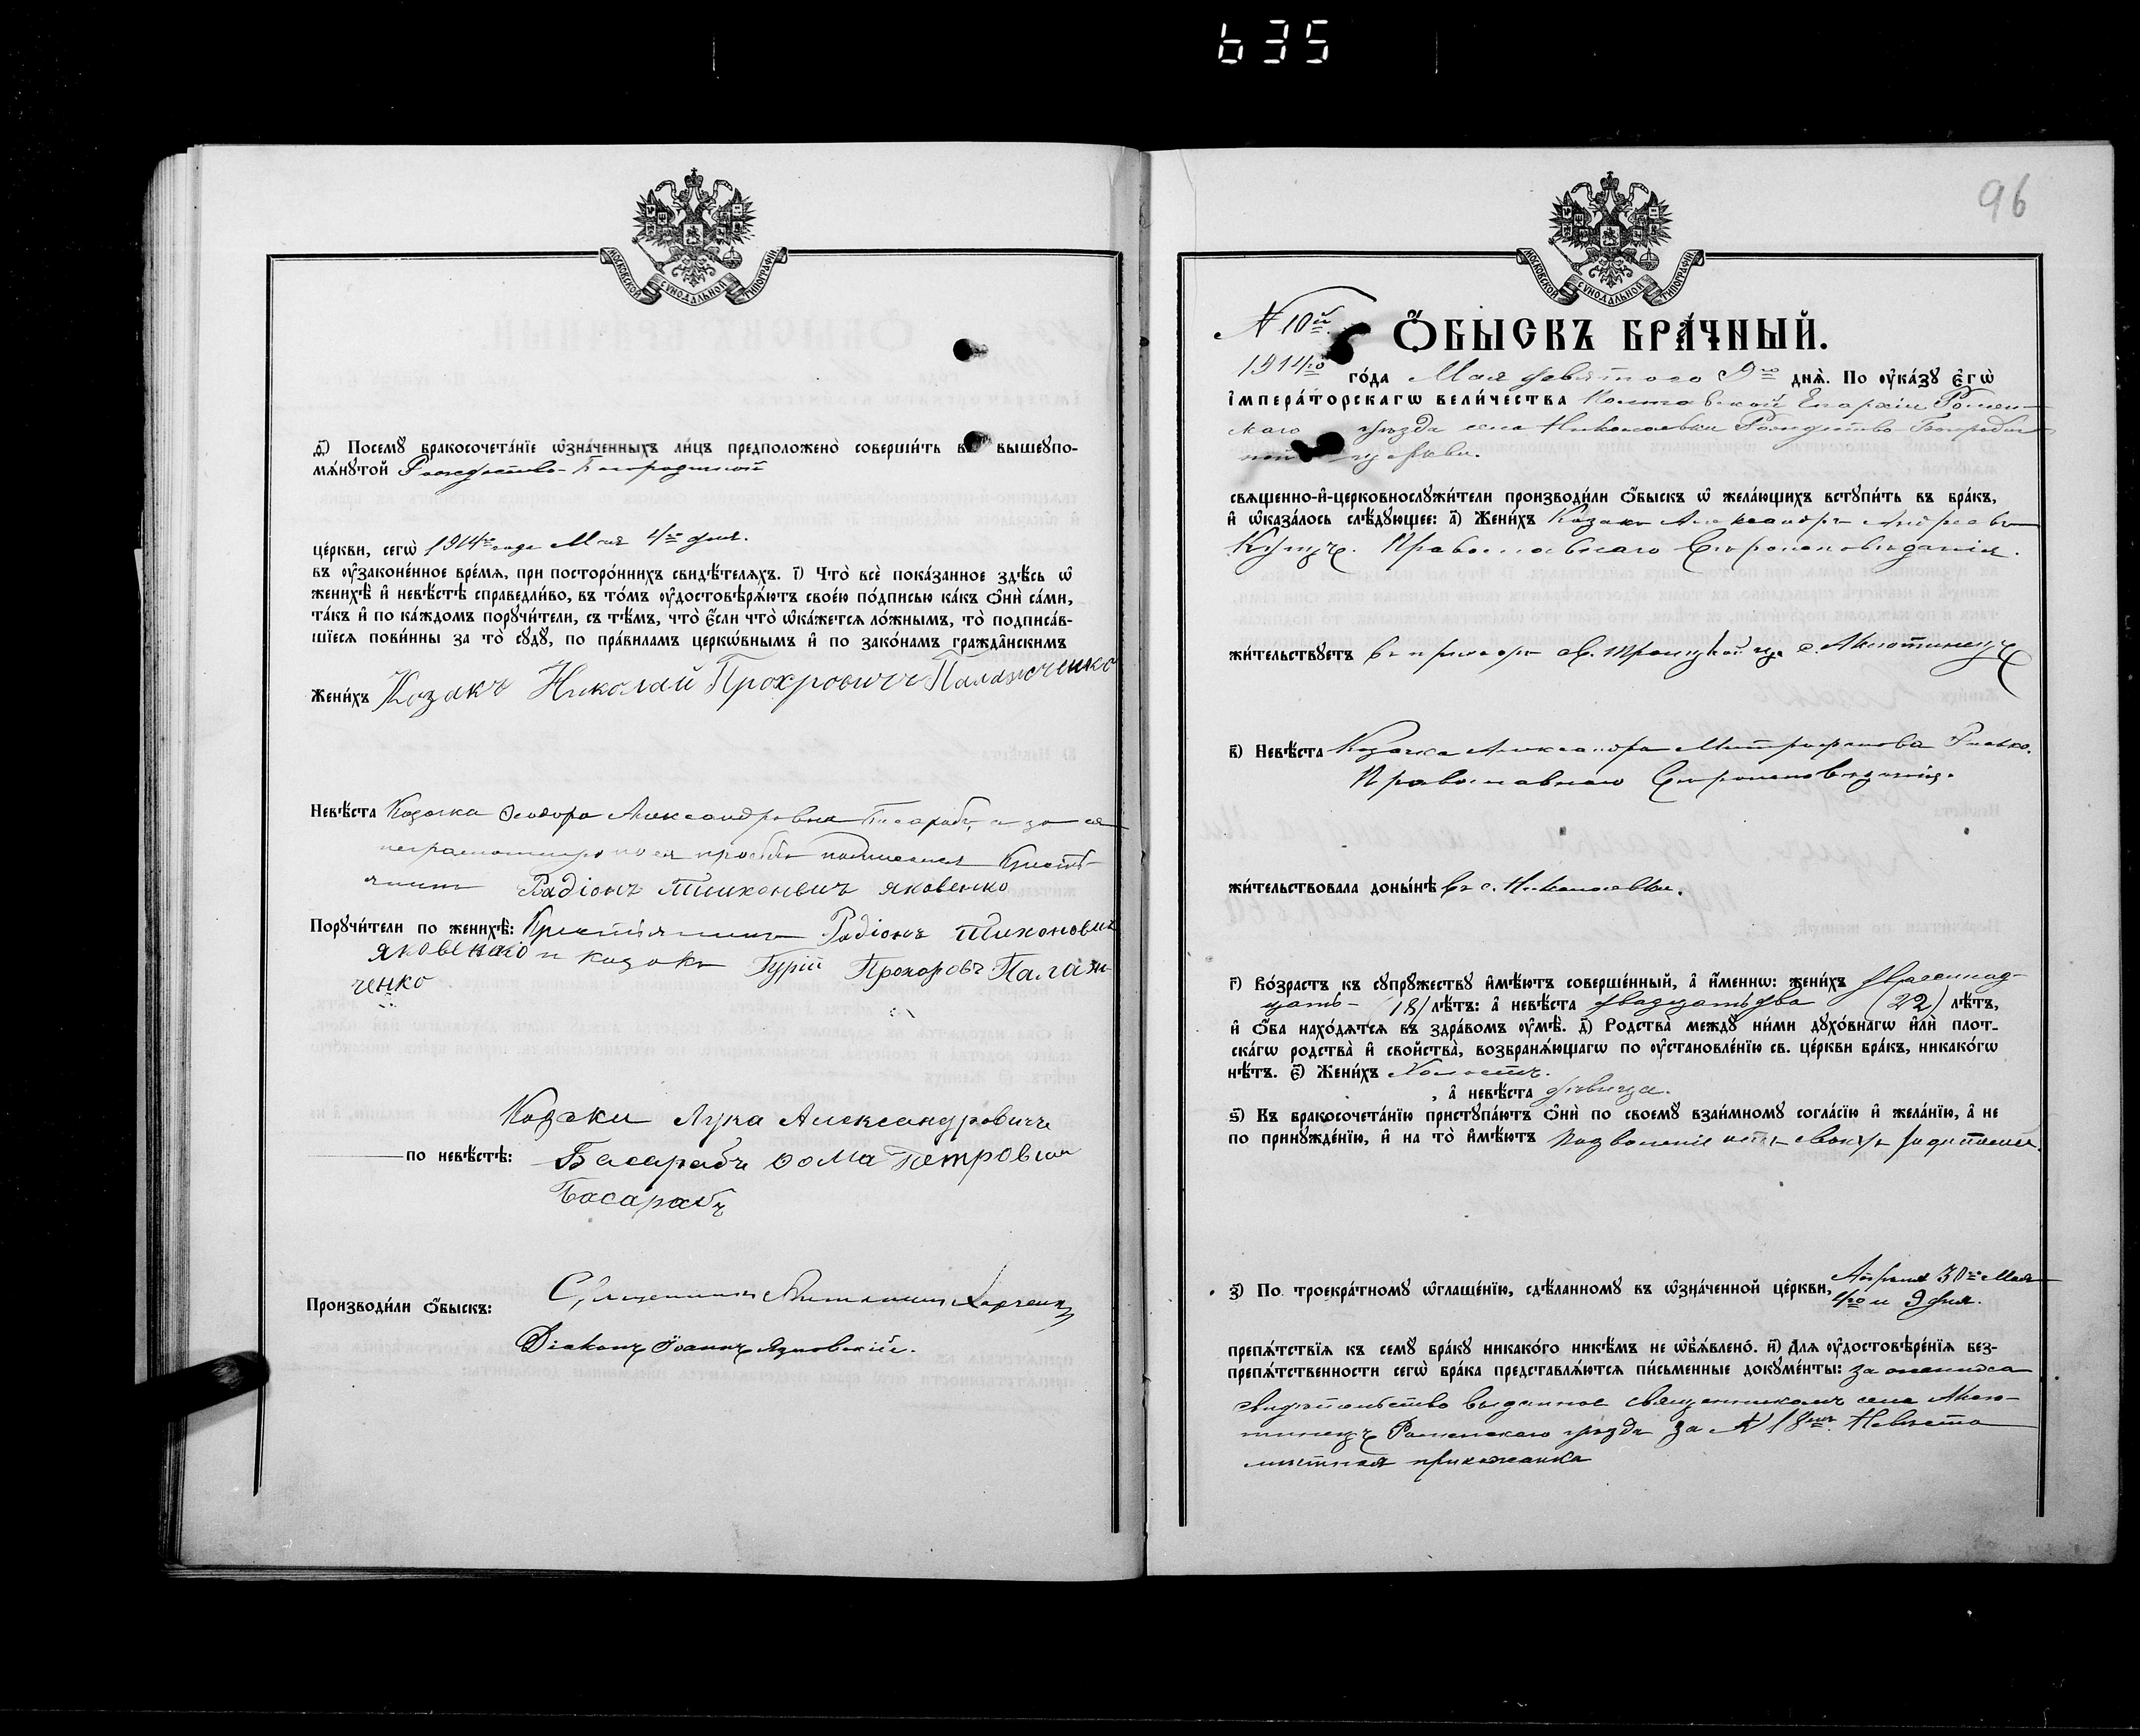 635
МОСКОВСКОЙ СѴНОДАЛЬНОЙ ТИПОГРАФІИ
ѳ҃) Посемꙋ бракосочета́нїе ѡ҆зна́ченныхъ ли́цъ предположено̀ соверши́ть въ вышеꙋпо-
мѧ́нꙋтой Рождество-Богородичной
це́ркви, сегѡ̀ 1914го года Мая 4го дня.
въ ᲂу҆законе́нное вре́мѧ, при посторо́ннихъ свидѣ́телѧхъ. і҃) Что̀ всѐ пока́занное здѣ́сь ѡ҆
женихѣ̀ и҆ невѣ́стѣ справедли́во, въ то́мъ ᲂу҆достовѣрѧ́ютъ свое́ю по́дписью ка́къ ѻ҆нѝ са́ми,
та́къ и҆ по ка́ждомъ порꙋчи́тели, съ тѣ́мъ, что̀ є҆́сли что̀ ѡ҆ка́жетсѧ ло́жнымъ, то̀ подписа́в-
шїесѧ пови́нны за то̀ сꙋдꙋ̀, по пра́виламъ церкѡ́внымъ и҆ по зако́намъ гражда̂нскимъ
Жени́хъ Козакъ Николай Прохровичъ Палажченко
Невѣ́ста Козачка Ѳеодора Александровна Басарабъ, а за ея
неграмотную по ея просьбѣ подписался Крестья-
нинъ Радіонъ Тихоновичъ Яковенко
Порꙋчи́тели по женихѣ̀: Крестьянинъ Радіонъ Тихоновичъ
Яковенко и козакъ Гурій Прохоровъ Палаж-
ченко
Козаки Лука Александровичъ
по невѣ́стѣ: Басарабъ Ѳома Петровичъ
Басарабъ
Священникъ Харченко
Производи́ли ѻ҆́быскъ:
Діаконъ Іоаннъ Язловскій.
96
МОСКОВСКОЙ СѴНОДАЛЬНОЙ ТИПОГРАФІИ
№ 10й
ѺБЫСКЪ БРАЧНЫЙ.
1914го го́да Мая девятого 9го днѧ̀. По ᲂу҆ка́зꙋ Є҆гѡ̀
І҆мпера́торскагѡ вели́чества Полтавской Епархіи Ромен-
скаго уѣзда села Николаевки Рождество-Богородич-
ной церкви.
свѧщенно-и҆-церковнослꙋжи́тели производи́ли ѻ҆́быскъ ѡ҆ жела́ющихъ встꙋпи́ть въ бра́къ,
и҆ ѡ҆каза́лось слѣ́дꙋющее: а҃) Жени́хъ Козакъ Александръ Андреевъ
Куцъ. Православнаго Вѣроисповѣданія.
жи́тельствꙋетъ въ приходѣ св. Троицкой ц. с. Аксютинецъ
в҃) Невѣ́ста Козачка Александра Митрофанова
Православнаго Вѣроисповѣданія.
жи́тельствовала доны́нѣ въ с. Николаевкѣ.
г҃) Во́зрастъ къ сꙋпрꙋ́жествꙋ и҆мѣ́ютъ соверше́нный, а҆ и҆́меннѡ: жени́хъ двѣсемнад-
цать (18) лѣ́тъ: а҆ невѣ́ста двадцать два (22) лѣ́тъ,
и҆ ѻ҆́ба нахо́дѧтсѧ въ здра́вомъ ᲂу҆мѣ̀. д҃) Родства̀ междꙋ̀ ни́ми дꙋхо́внагѡ и҆лѝ плот-
ска́гѡ родства̀ и҆ сво́йства, возбранѧ́ющагѡ по ᲂу҆становле́нїю св. це́ркви бра́къ, никако́гѡ
нѣ́тъ. є҃) Жени́хъ Холостъ.
, а҆ невѣ́ста дѣвица.
ѕ҃) Къ бракосочета́нїю пристꙋпа́ютъ ѻ҆нѝ по своемꙋ̀ взаи́мномꙋ согла́сїю и҆ жела́нїю, а҆ не
по принꙋжде́нїю, и҆ на то̀ и҆мѣ́ютъ позволеніе отъ своихъ родителей.
з҃) По троекра́тномꙋ ѡ҆глаше́нїю, сдѣ́ланномꙋ въ ѡ҆зна́ченной це́ркви, Апрѣля 30го Мая
4го и 9 дня.
препѧ́тствїѧ къ семꙋ̀ бра́кꙋ никако́го никѣ́мъ не ѡ҆б̾ѧ́влено̀. и҃) Длѧ ᲂу҆достовѣре́нїѧ без-
препѧ́тственности сегѡ̀ бра́ка представлѧ́ютсѧ пи́сьменные докꙋме́нты: за жениха
свидѣтельство выданное священникомъ села Аксю-
тинецъ Роменскаго уѣзда за № 18мъ. Невѣста
мѣстная прихожанка